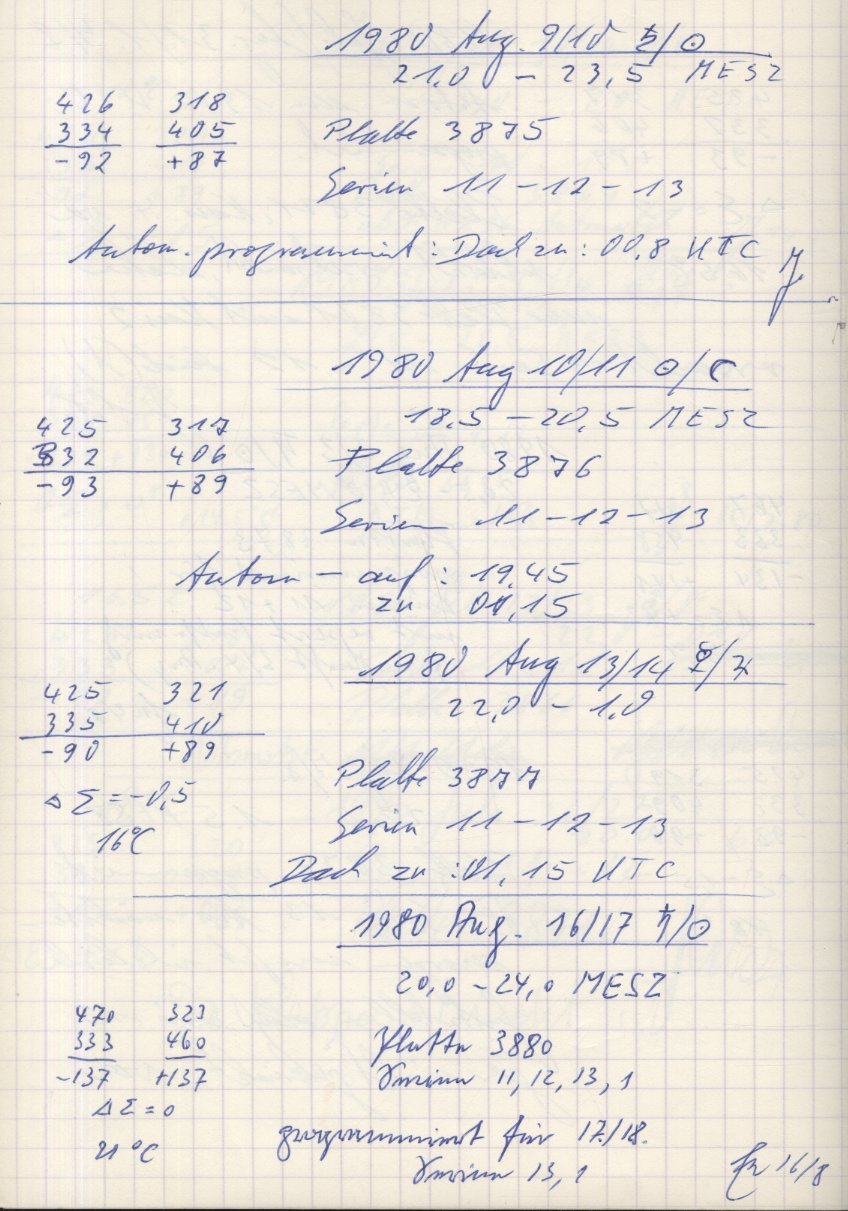 1980 Aug. 9/10 ♄/☉
21,0 – 23,5 MESZ
426 318
334 405
-92 +87
Platte 3875
Serien 11 – 12 – 13
Autom. programmiert: Dach zu: 00,8 UTC
1980 Aug 10/11 ☉/☾
18,5 – 20,5 MESZ
425 317
332 406
-93 +89
Platte 3876
Serien 11 – 12 – 13
Autom – auf: 19,45
zu 01,15
1980 Aug 13/14 ☿/♃
22,0 – 1,0
425 321
335 410
-90 +89
Δ Σ = -0,5
16°C
Platte 3877
Serien 11 – 12 – 13
Dach zu: 01,15 UTC
1980 Aug. 16/17 ♄/☉
20,0 – 24,0 MESZ
470 323
333 460
-137 +137
Δ Σ = 0
21 °C
Platte 3880
Serien 11, 12, 13, 1
programmiert für 17./18.
Serien 13, 1
16/8